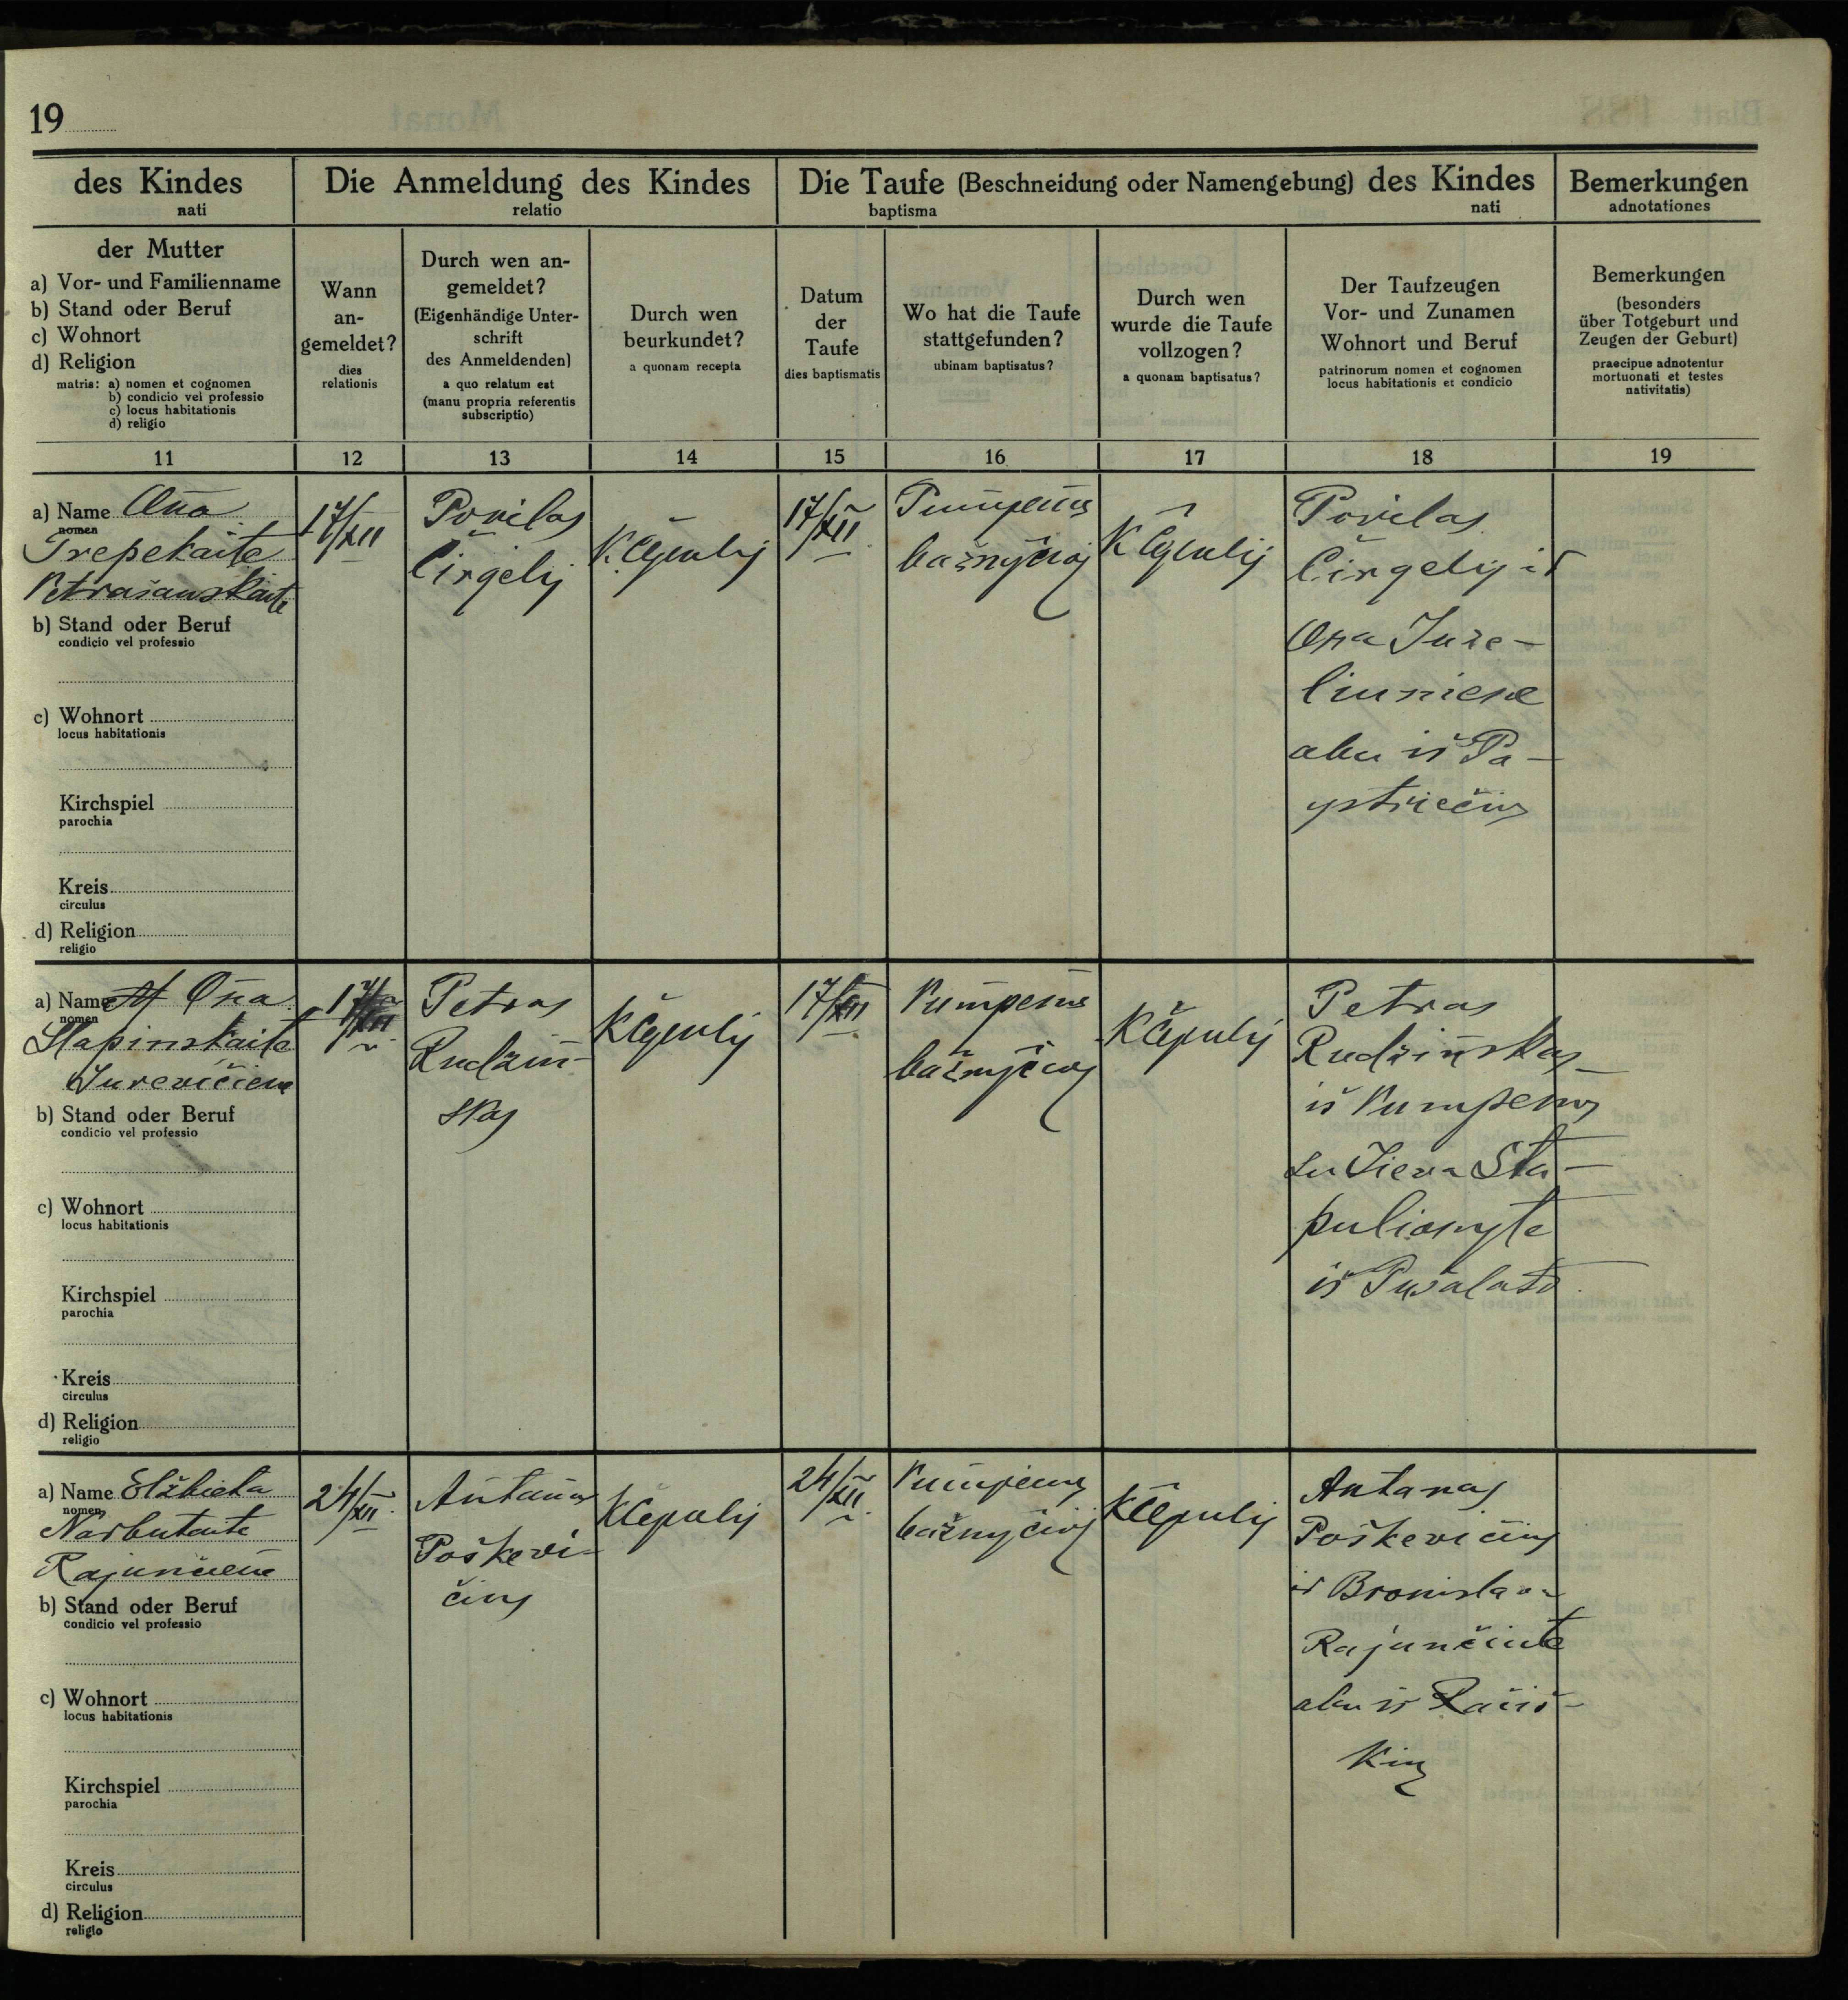 19
des Kindes
nati
Die Anmeldung des Kindes
relatio
Die Taufe (Beschneidung oder Namengebung) des Kindes
baptisma nati
Bemerkungen
adnotationes
der Mutter
a) Vor- und Familienname
b) Stand oder Beruf
c) Wohnort
d) Religion
matris: a) nomen et cognomen
b) condicio vel professio
c) locus habitationis
d) religio
Wann
an-
gemeldet?
dies
relationis
Durch wen an-
gemeldet?
(Eigenhändige Unter-
schrift
des Anmeldenden)
a quo relatum est
(manu propria referentis
subscriptio)
Durch wen
beurkundet?
a quonam recepta
Datum
der
Taufe
dies baptismatis
Wo hat die Taufe
stattgefunden?
ubinam baptisatus?
Durch wen
wurde die Taufe
vollzogen?
a quonam baptisatus?
Der Taufzeugen
Vor- und Zunamen
Wohnort und Beruf
patrinorum nomen et cognomen
locus habitationis et condicio
Bemerkungen
(besonders
über Totgeburt und
Zeugen der Geburt)
praecipue adnotentur
mortuonati et testes
nativitatis)
11 12 13 14 15 16 17 18 19
a) Name Ona
nomen
Trepekaite
b) Stand oder Beruf
condicio vel professio
c) Wohnort
locus habitationis
Kirchspiel
parochia
Kreis
circulus
d) Religion
religio
17/XII
Povilas
Čirgelis
K. Čepulis
17/XII
Pumpenų
bažnyčioj
K Čepulis
Povilas
Čirgelis ir
Ona Juze-
liuniene
abu iš Pa-
ystriečių
a) Name Ona
nomen
Stapinskaite
Jurevičiene
b) Stand oder Beruf
condicio vel professio
c) Wohnort
locus habitationis
Kirchspiel
parochia
Kreis
circulus
d) Religion
religio
17/XII
Petras
Rudzin-
skas
K Čepulis
17/XII
Pumpenų
bažnyčioj
K Čepulis
Petras
Rudzinskas
iš Pumpenų
su Ieva Sta-
pulionyte
iš Pušaloto
a) Name Elžbieta
nomen
Narbutaite
Rajunčiene
b) Stand oder Beruf
condicio vel professio
c) Wohnort
locus habitationis
Kirchspiel
parochia
Kreis
circulus
d) Religion
religio
24/XII.
Antanas
Poškevi-
čius
K Čepulis
24/XII.
Pumpenų
bažnyčioj
K Čepulis
Antanas
Poškevičius
ir Bronislava
Rajunčiute
abu iš Račiš-
kių